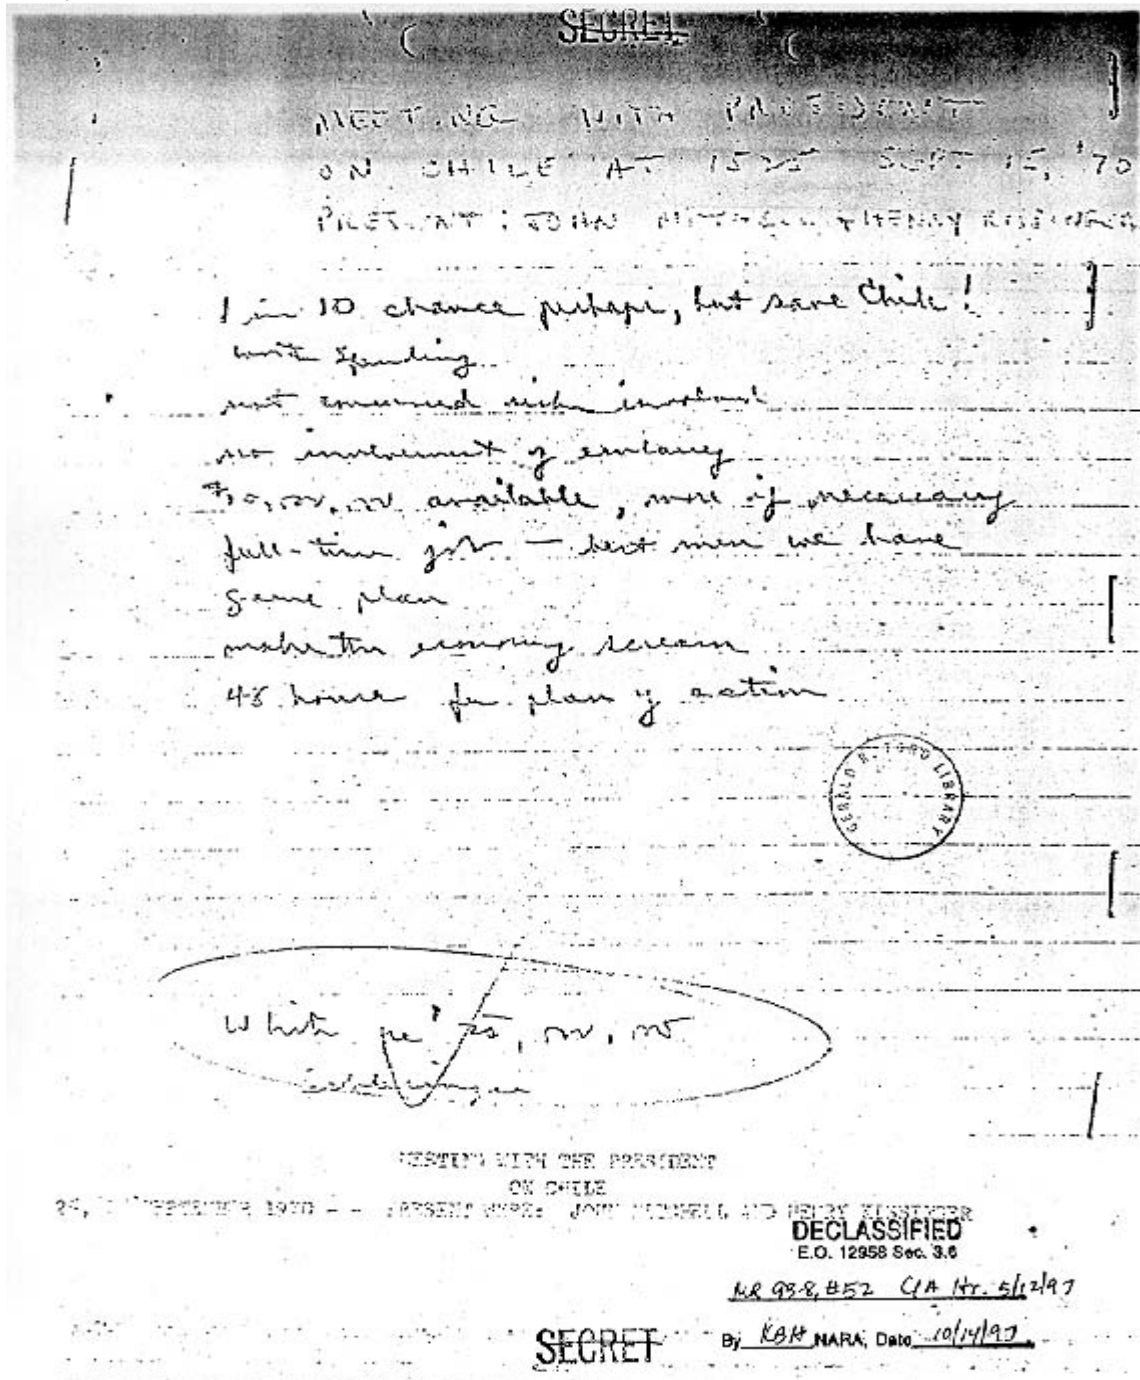 SECRET
MEETING WITH PRESIDENT
ON CHILE AT 1525 SEPT 15, '70
PRESENT: JOHN MITCHELL & HENRY KISSINGER
1 in 10 chance perhaps, but save Chile!
worth spending
not concerned risks involved
no involvement of embassy
$10,000,000 available, more if necessary
full-time job — best men we have
game plan
make the economy scream
48 hours for plan of action
GERALD R. FORD LIBRARY
MEETING WITH THE PRESIDENT
ON CHILE
SEPTEMBER 1970 - - PRESENT WERE: JOHN MITCHELL AND HENRY KISSINGER
DECLASSIFIED
E.O. 12958 Sec. 3.6
MR 93-8, #52 CIA ltr. 5/12/97
By KBH NARA, Date 10/14/97
SECRET